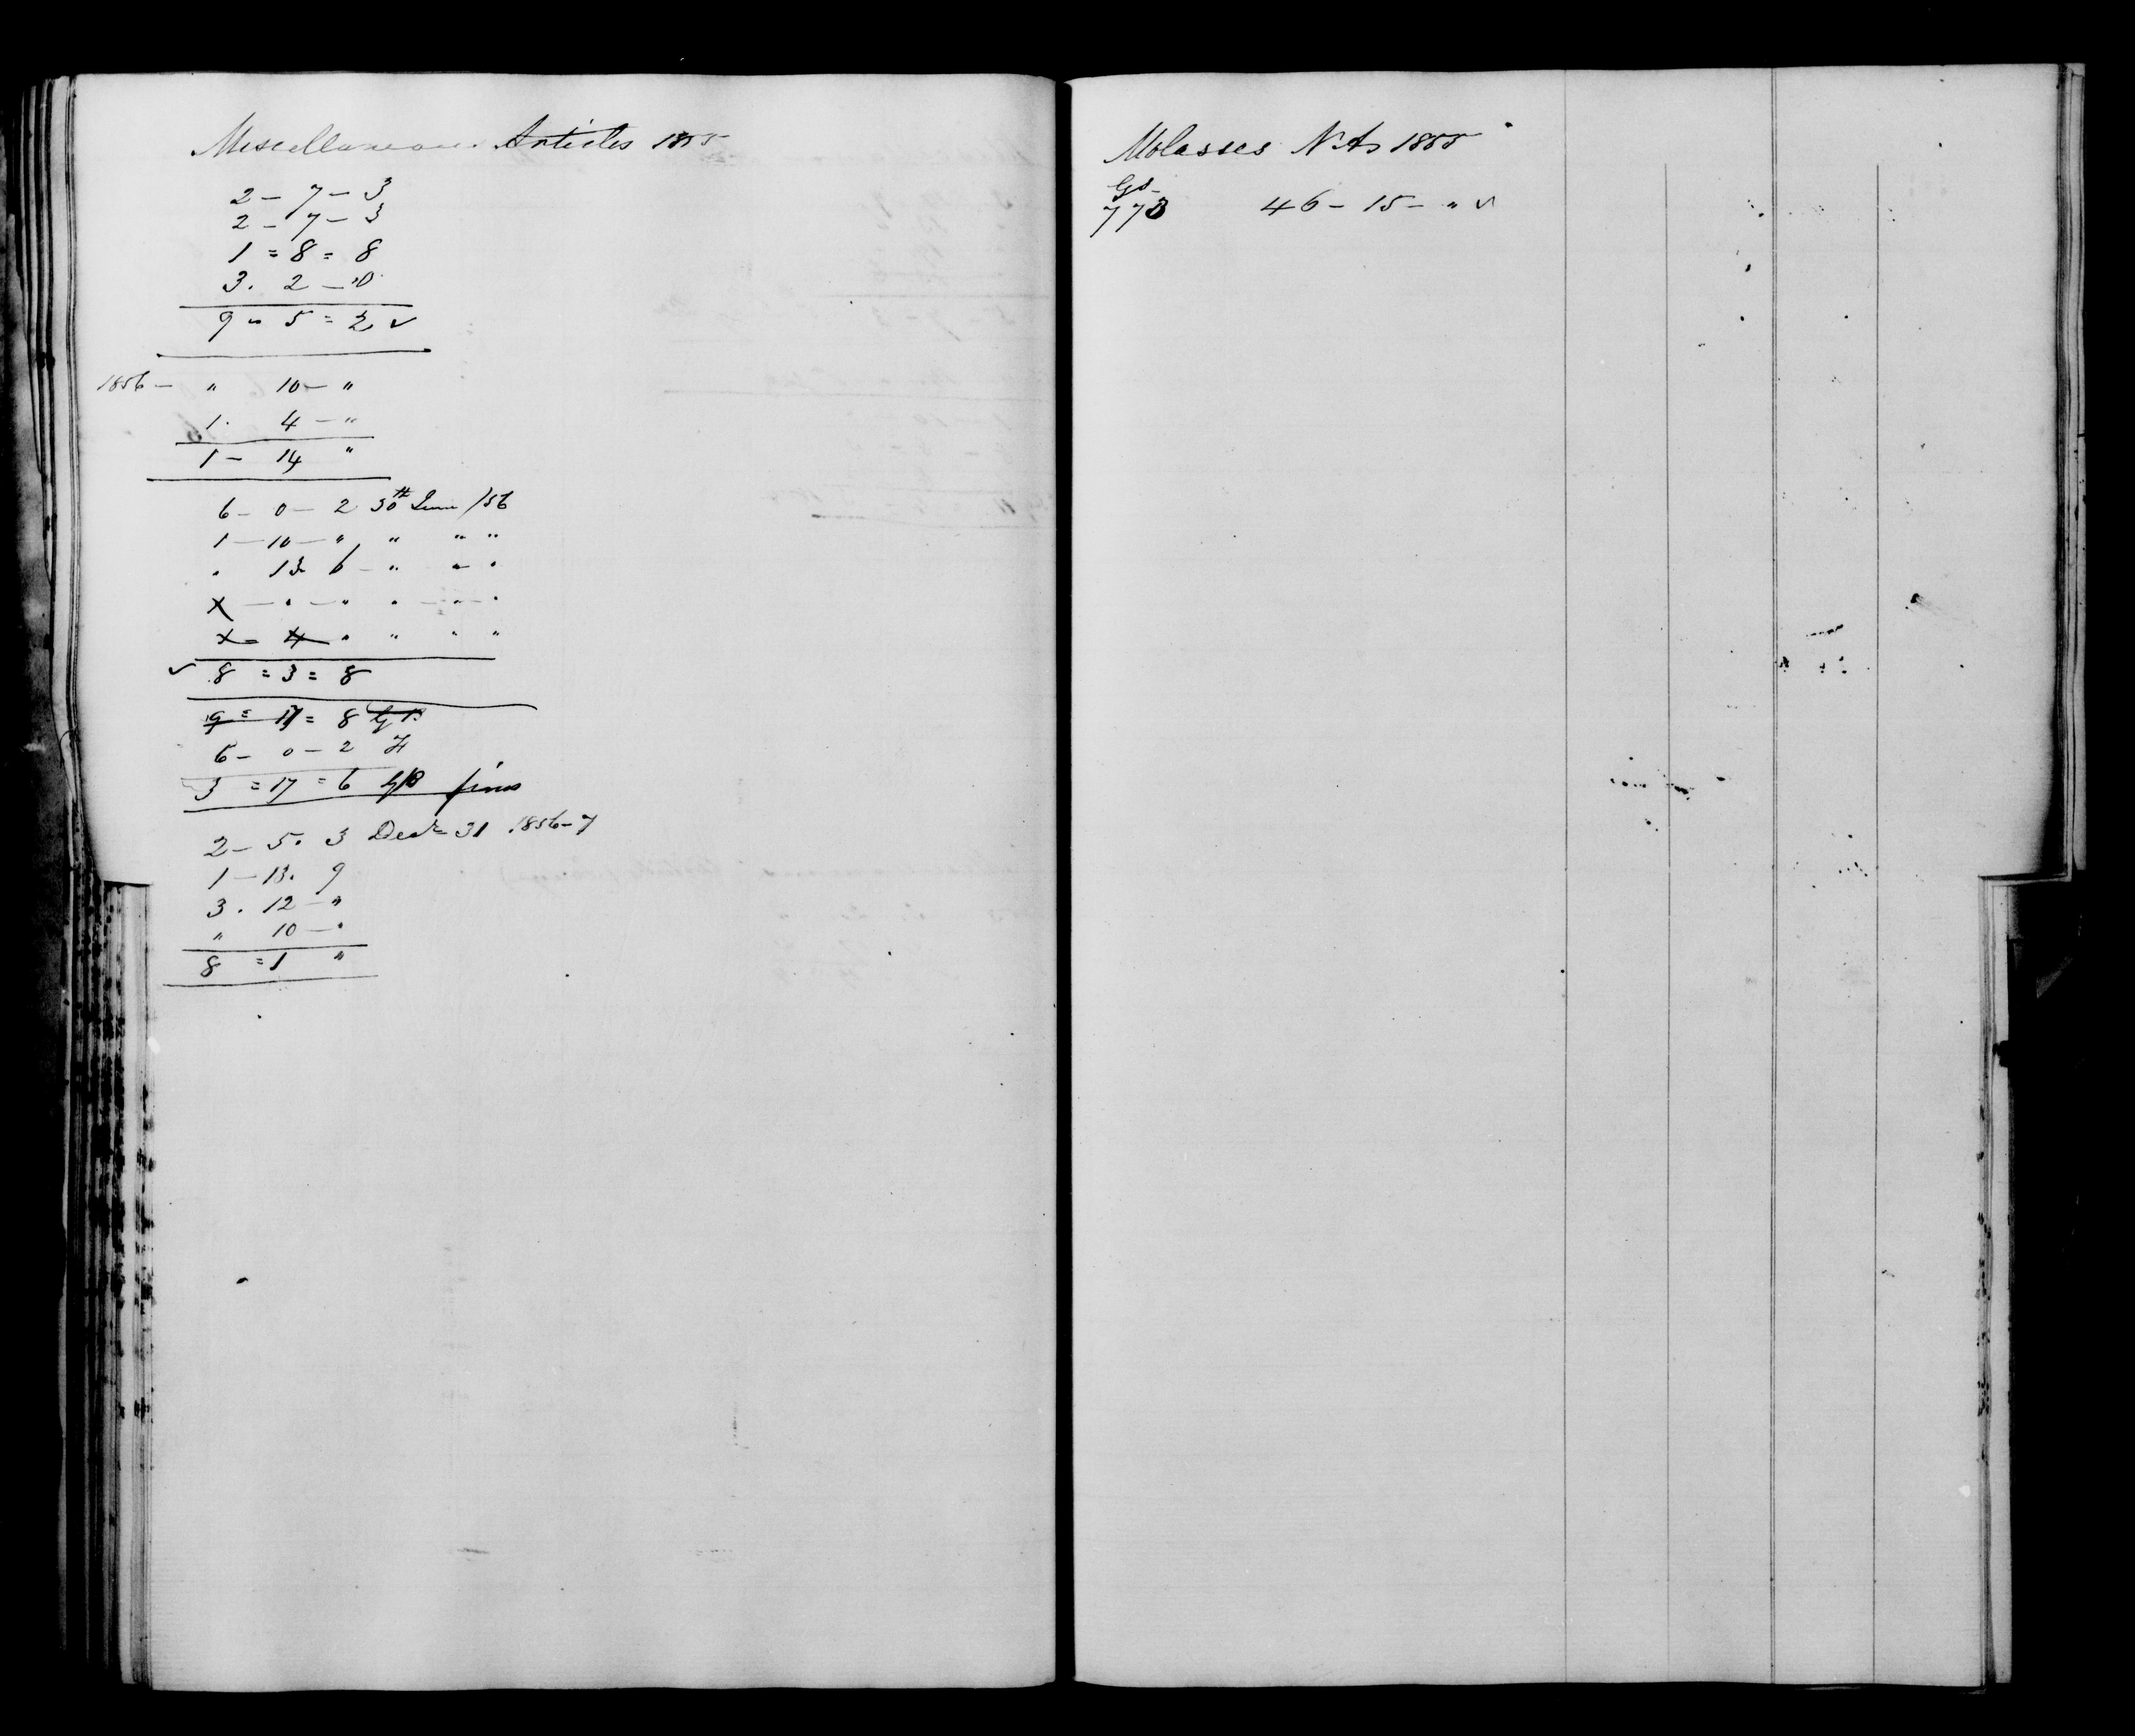 Miscellaneous Articles 1855
2 - 7 - 3
2 - 7 - 3
1 = 8 = 8
3 . 2 - "
9 " 5 = 2 ✓
1856 - " 10 - "
1 . 4 - "
1 - 14 "
6 - 0 - 2 30th June /56
1 - 10 - " " " "
" 13 6 - " " "
8 = 3 = 8
9 = 17 = 8
6 - 0 - 2
3 = 17 = 6
2 - 5 . 3 Decr 31 1856-7
1 - 13 . 9
3 . 12 - "
" 10 - "
8 = 1 "
Molasses 1855
Gs
773 46 - 15 - " ✓